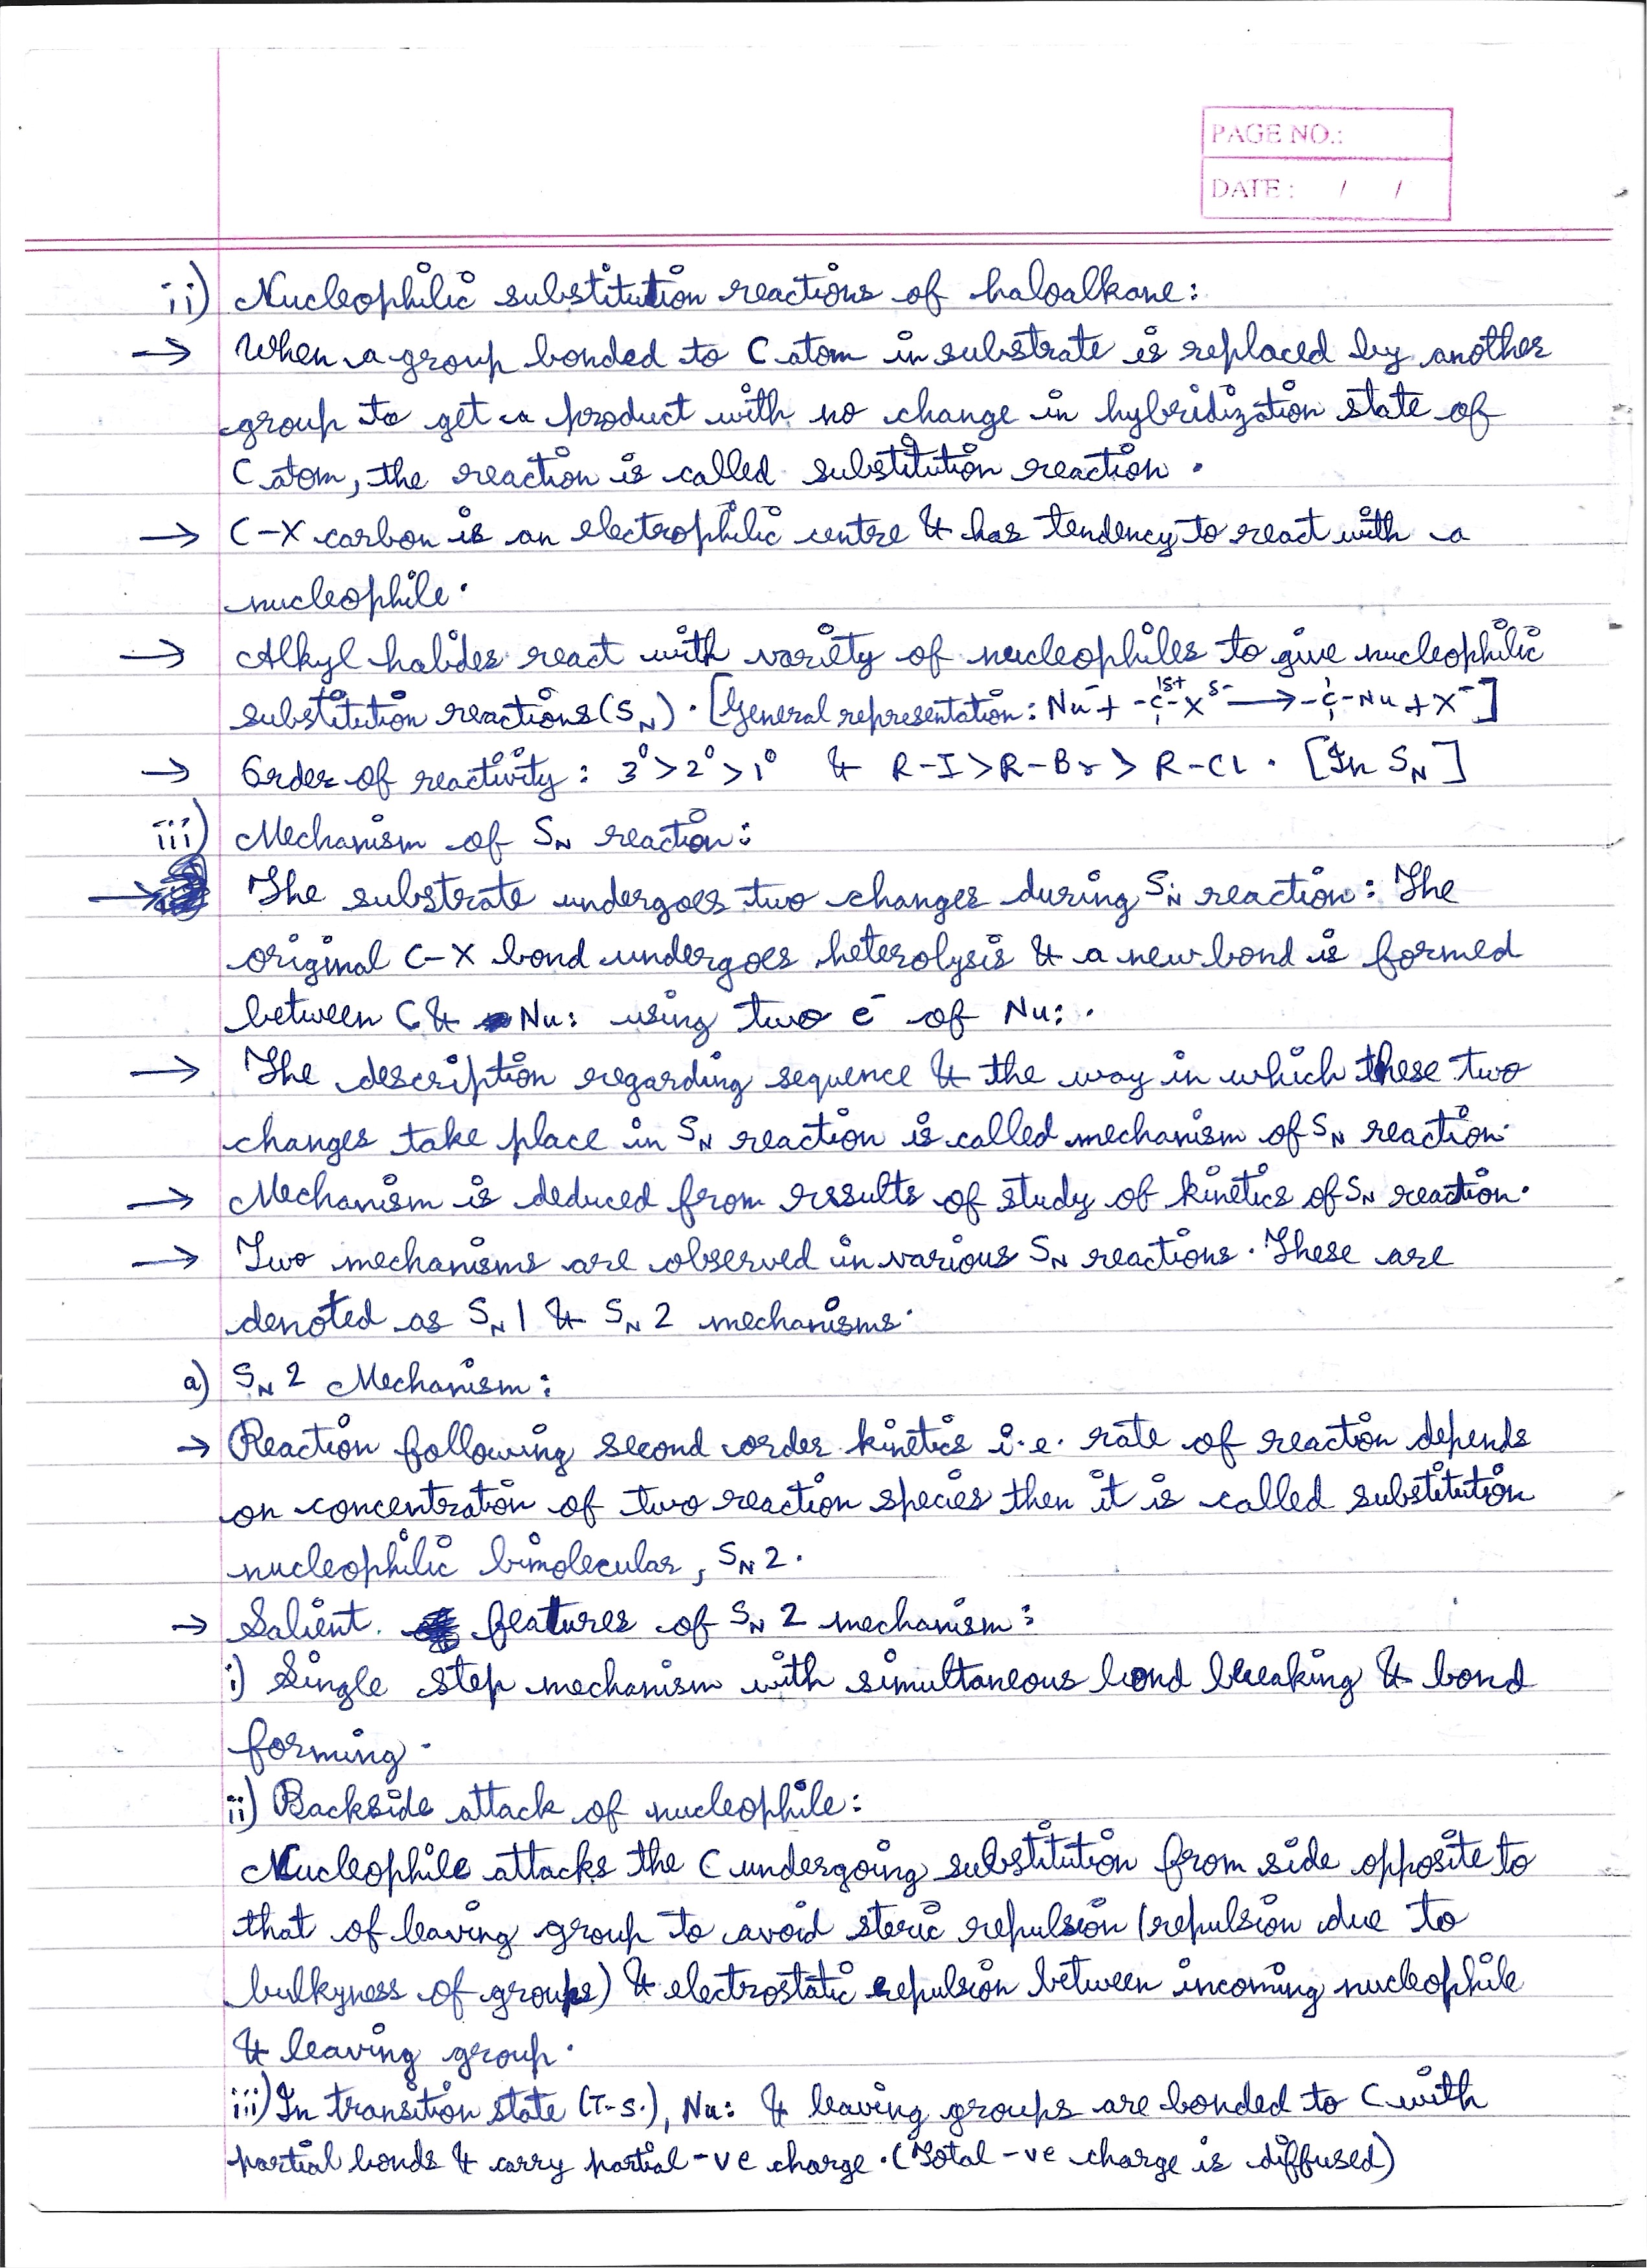 PAGE NO.:
DATE : / /
ii) Nucleophilic substitution reactions of haloalkane:
→ When a group bonded to C atom in substrate is replaced by another
group to get a product with no change in hybridization state of
C atom, the reaction is called substitution reaction.
→ C-X carbon is an electrophilic centre & has tendency to react with a
nucleophile.
→ Alkyl halides react with variety of nucleophiles to give nucleophilic
substitution reactions (SN). [General representation: Nu⁻ + -C^δ+-X^δ- → -C-Nu + X⁻]
→ Order of reactivity: 3°>2°>1° & R-I>R-Br>R-Cl. [In SN]
iii) Mechanism of SN reaction:
→ The substrate undergoes two changes during SN reaction: The
original C-X bond undergoes heterolysis & a new bond is formed
between C & Nu: using two e⁻ of Nu:.
→ The description regarding sequence & the way in which these two
changes take place in SN reaction is called mechanism of SN reaction.
→ Mechanism is deduced from results of study of kinetics of SN reaction.
→ Two mechanisms are observed in various SN reactions. These are
denoted as SN1 & SN2 mechanisms.
a) SN2 Mechanism:
→ Reaction following second order kinetics i.e. rate of reaction depends
on concentration of two reaction species then it is called substitution
nucleophilic bimolecular, SN2.
→ Salient features of SN2 mechanism:
i) Single step mechanism with simultaneous bond breaking & bond
forming.
ii) Backside attack of nucleophile:
Nucleophile attacks the C undergoing substitution from side opposite to
that of leaving group to avoid steric repulsion (repulsion due to
bulkyness of groups) & electrostatic repulsion between incoming nucleophile
& leaving group.
iii) In transition state (T.S.), Nu: & leaving groups are bonded to C with
partial bonds & carry partial -ve charge. (Total -ve charge is diffused)